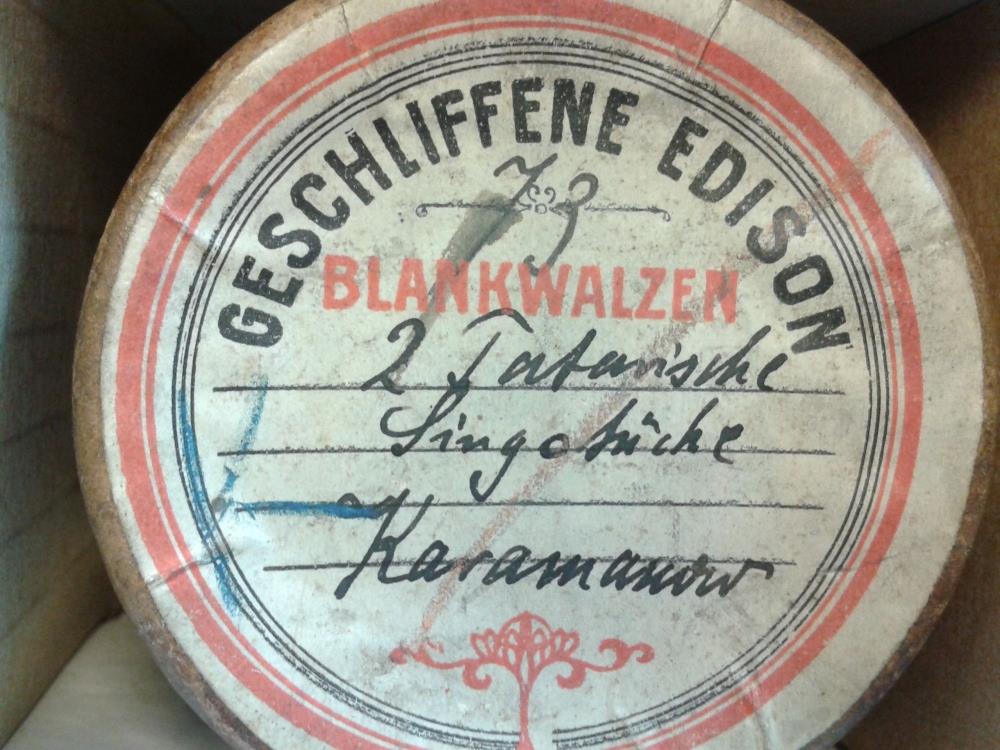 GESCHLIFFENE EDISON
73
BLANKWALZEN
2 Tatarische
Singstücke
Karamanow